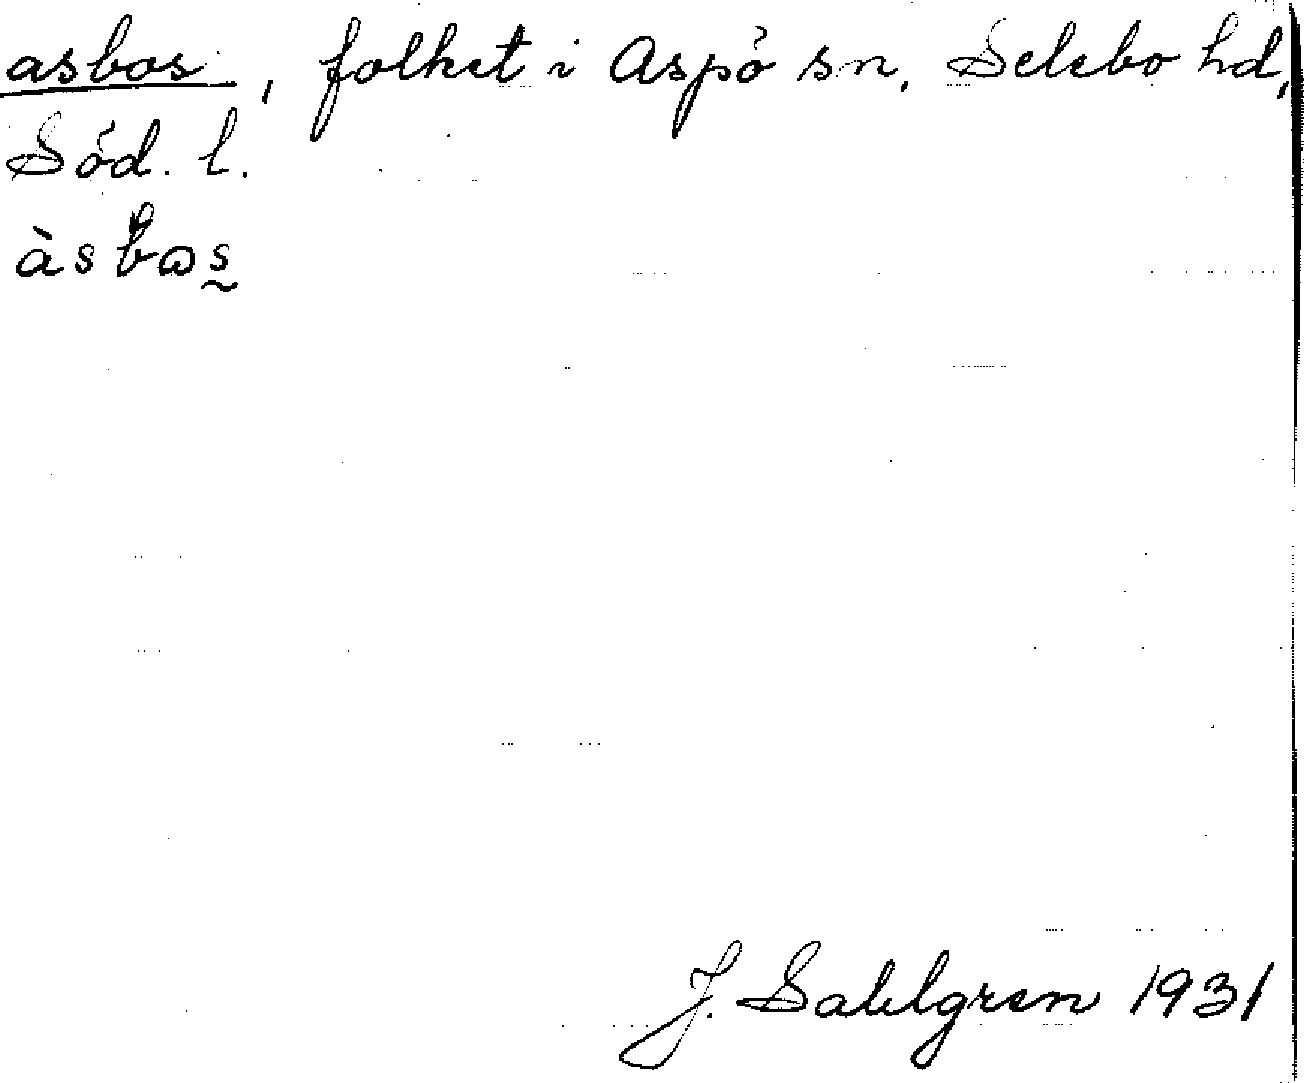 asbos, folket i Aspö sn, Selebo hd,
Söd. l.
àsbɷs̰
J. Sahlgren 1931